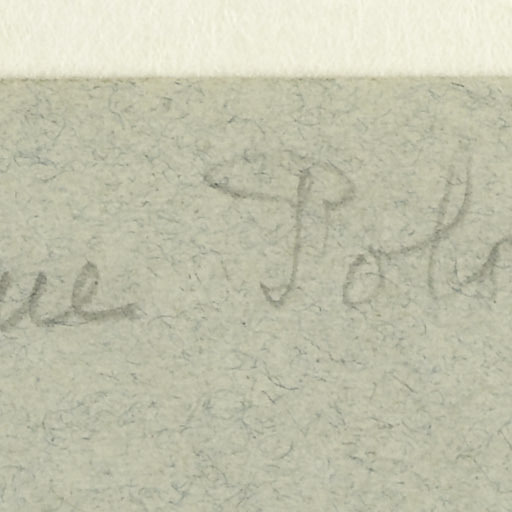 ue Pol